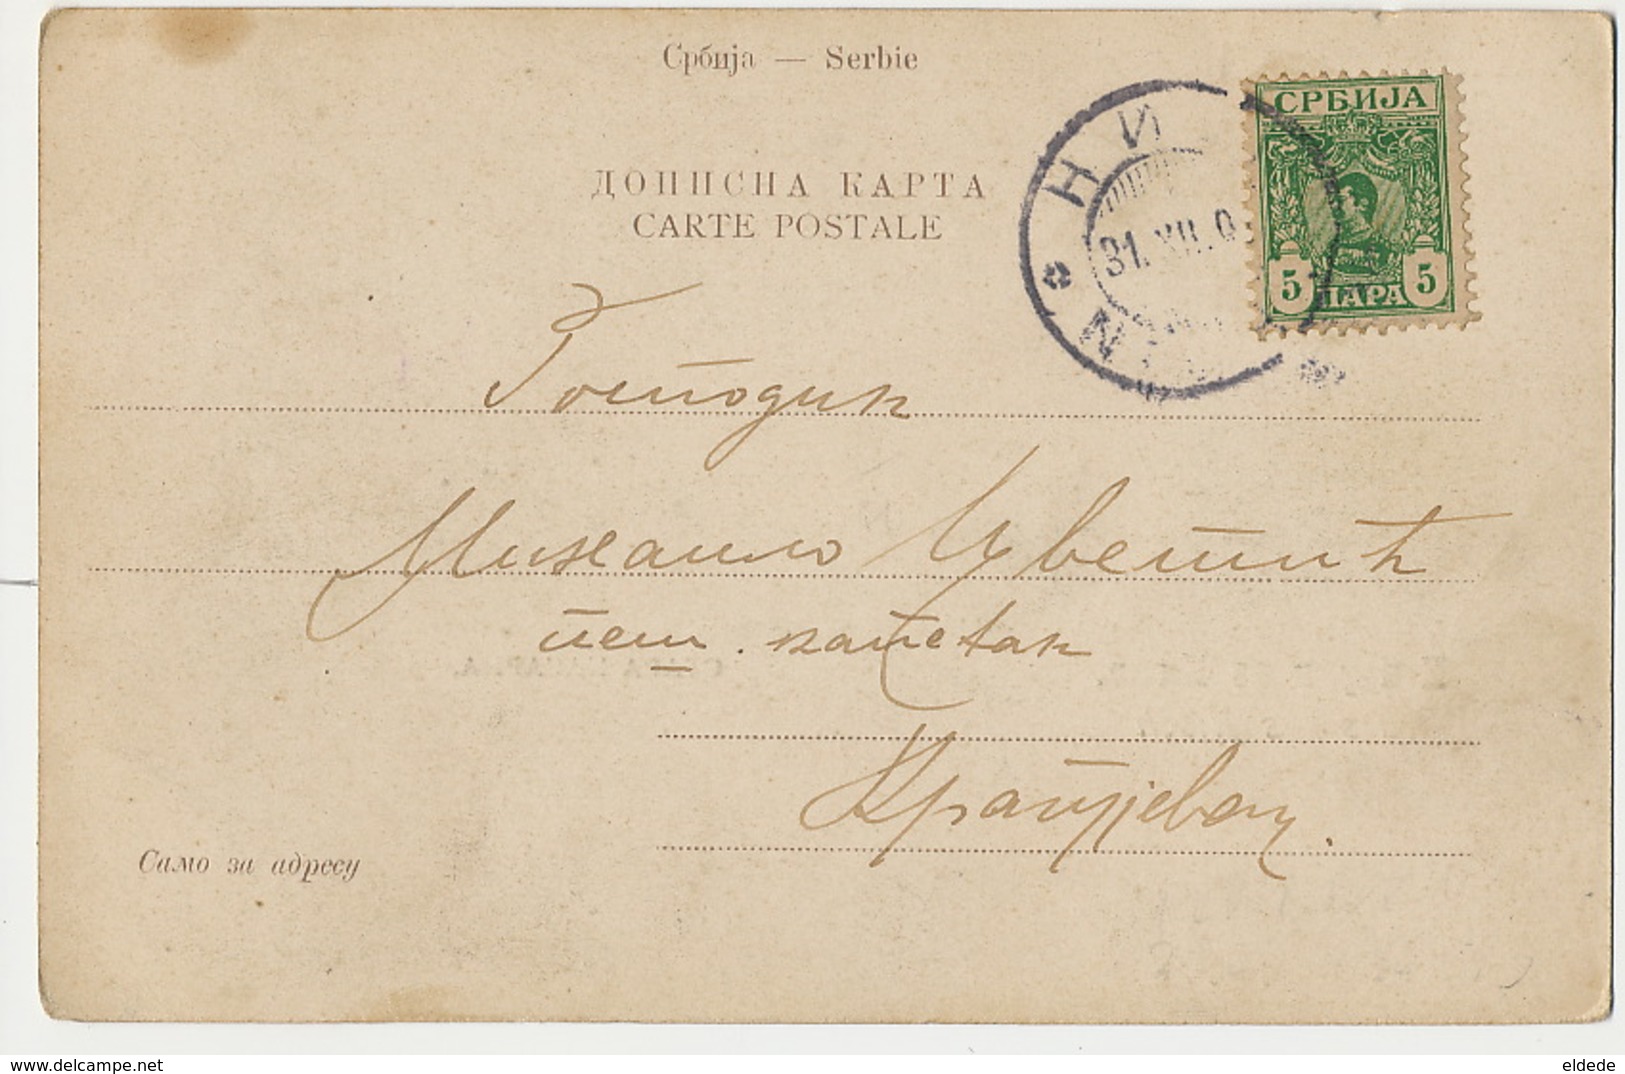 Србија — Serbie
ДОПИСНА КАРТА
CARTE POSTALE
СРБИЈА
НИ
31. XII. 0
5 ПАРА 5
Господин
Михаило Цветић
пеш. капетан
Краљевац.
Само за адресу
delcampe.net
eldede